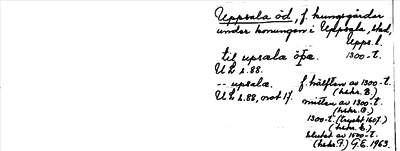 Uppsala öd, f. kungsgårdar
under konungen i Uppsala, stad,
Upps. l.
til upsala öþa. 1300-t.
UL s. 88.
-- upsala. f. hälften av 1300-t.
(hskr. B.)
UL s. 88, not 17. mitten av 1300-t.
(hskr. C.)
1300-t. (tryckt 1607.)
(hskr. E.)
slutet av 1500-t.
(hskr. F.) G.E. 1963.